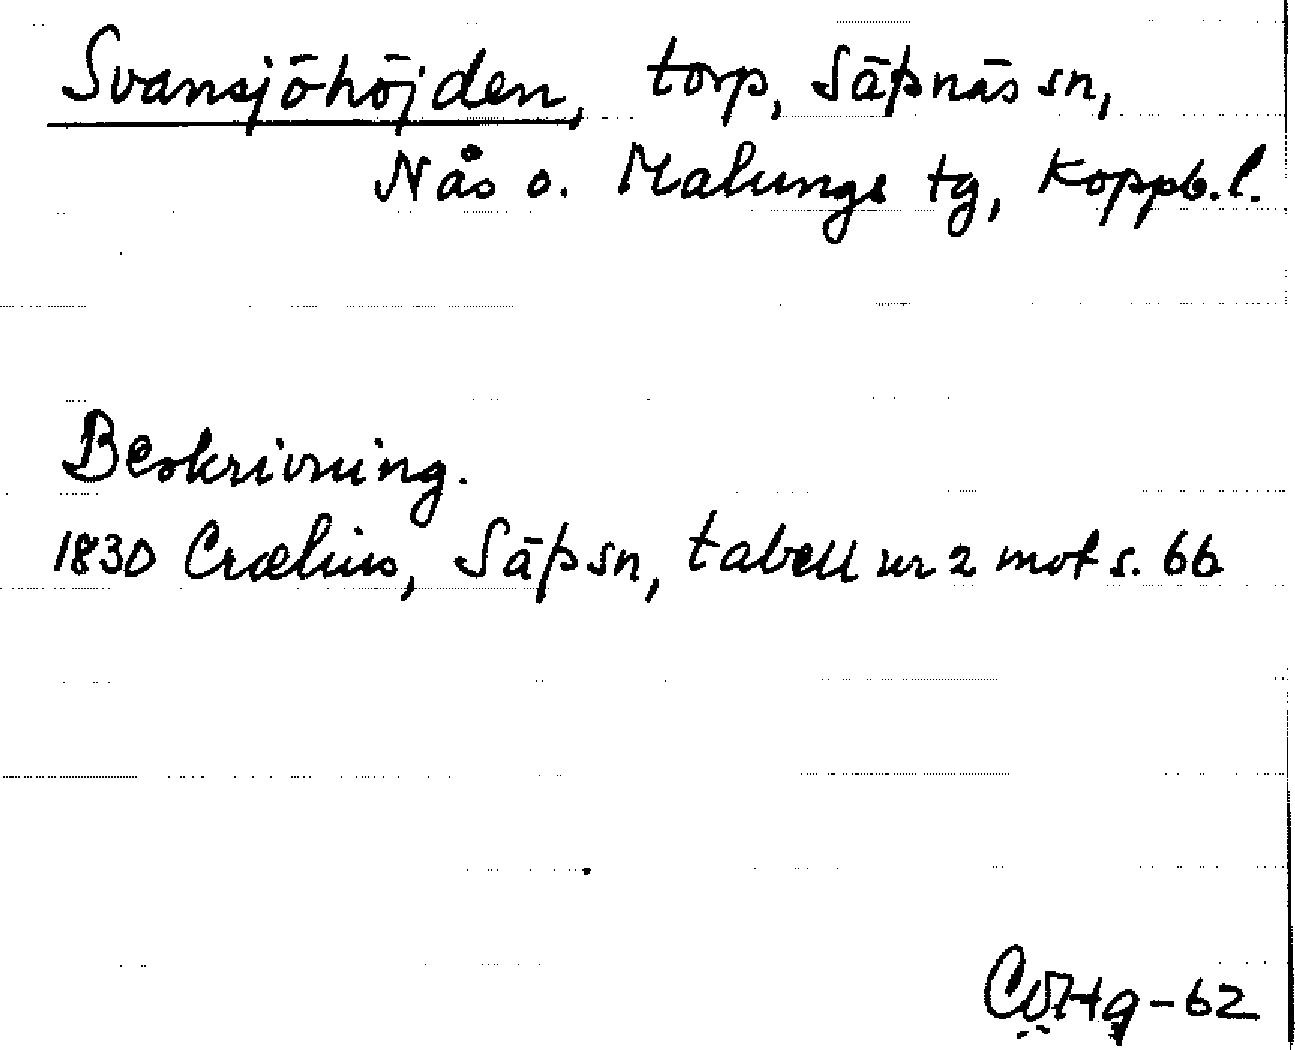 Svansjöhöjden, torp, Säfsnäs sn,
Nås o. Malungs tg, Koppb.l.
Beskrivning.
1830 Crælius, Säfs sn, tabell nr 2 mot s. 66